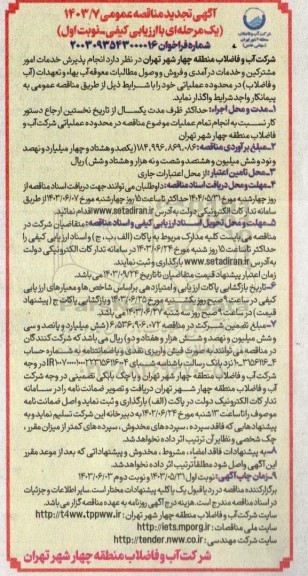 آگهی تجدید مناقصه عمومی ۱۴۰۳/۷
(یک مرحله‌ای با ارزیابی کیفی-نوبت اول)
شماره فراخوان ۲۰۰۳۰۹۳۵۴۳۰۰۰۰۱۶
شرکت آب و فاضلاب منطقه چهار شهر تهران در نظر دارد انجام پذیرش خدمات امور
مشترکین و خدمات درآمدی و فروش و وصول مطالبات معوقه آب بهاء و تعهدات (آب
و فاضلاب) در محدوده عملیاتی خود را با شرایط ذیل از طریق مناقصه عمومی به
پیمانکار واجد شرایط واگذار نماید.
۱-مدت و محل اجراء: حداکثر ظرف مدت یکسال از تاریخ نخستین ارجاع دستور
کار نسبت به انجام تمام عملیات موضوع مناقصه در محدوده عملیاتی شرکت آب و
فاضلاب منطقه چهار شهر تهران
۲-مبلغ برآوردی مناقصه: ۱۸۴,۹۹۶,۸۶۹,۰۸۶ (یکصد و هشتاد و چهار میلیارد و نهصد
و نود و شش میلیون و هشتصد و شصت و نه هزار و هشتاد و شش) ریال
۳-محل تامین اعتبار: از محل اعتبارات جاری
۴-مهلت و محل دریافت اسناد مناقصه: داوطلبان می‌توانند جهت دریافت اسناد مناقصه از
روز چهارشنبه مورخ ۱۴۰۳/۰۵/۳۱ حداکثر تا ساعت ۱۵ روز چهارشنبه مورخ ۱۴۰۳/۰۶/۰۷ از طریق
سامانه تدارکات الکترونیکی دولت به آدرس www.setadiran.ir اقدام نمایند.
۵-مهلت و محل تحویل اسناد ارزیابی کیفی و اسناد مناقصه: متقاضیان شرکت در
مناقصه می‌بایست کلیه مدارک مربوط به پاکات (الف، ب، ج) و اسناد ارزیابی کیفی را
حداکثر تا ساعت ۱۵ روز شنبه مورخ ۱۴۰۳/۰۶/۲۴ در سامانه تدارکات الکترونیکی دولت
به آدرس www.setadiran.ir بارگذاری و ثبت نمایند.
زمان اعتبار پیشنهاد قیمت متقاضیان تا تاریخ ۱۴۰۳/۰۹/۲۴ می‌باشد.
۶-تاریخ بازگشایی پاکات ارزیابی و امتیازدهی بر اساس شاخص‌ها و معیارهای ارزیابی
کیفی در ساعت ۹ صبح روز یکشنبه مورخ ۱۴۰۳/۰۶/۲۵ و بازگشایی پاکات ج (پیشنهاد
قیمت) در ساعت ۹ صبح روز سه شنبه ۱۴۰۳/۰۶/۲۷ می‌باشد.
۷-مبلغ تضمین شرکت در مناقصه ۶,۵۳۶,۹۰۶,۰۷۲ (شش میلیارد و پانصد و سی
و شش میلیون و نهصد و شش هزار و هفتاد و دو) ریال می‌باشد که شرکت کنندگان
در مناقصه می‌توانند به صورت فیش واریزی نقدی و یا ضمانتنامه به شماره حساب
نزد بانک رسالت باشناسه شبای در وجه
آب و فاضلاب منطقه چهار شهر تهران و یا چک بانکی تضمینی در وجه شرکت
آب و فاضلاب منطقه چهار شهر تهران دریافت و تصویر ضمانت نامه را در سامانه
تدارکات الکترونیک دولت در پاکت (الف) بارگذاری و ثبت نماید و اصل ضمانت نامه
موصوف را تا ساعت ۱۳ شنبه مورخ ۱۴۰۳/۰۶/۲۴ به دبیرخانه این شرکت تسلیم نماید و به
پیشنهادهایی که فاقد سپرده، سپرده‌های مخدوش، سپرده‌های کمتر از میزان مقرر،
چک شخصی و نظایر آن ترتیب اثر داده نخواهد شد.
۸-به پیشنهادات فاقد امضاء، مشروط، مخدوش و پیشنهاداتی که بعد از موعد مقرر
این آگهی واصل شود مطلقا ترتیب اثر داده نخواهد شد.
۹-زمان چاپ آگهی: نوبت اول ۱۴۰۳/۰۵/۳۱ و نوبت دوم ۱۴۰۳/۰۶/۰۳
برگزارکننده مناقصه در رد یا قبول یک یا کلیه پیشنهادات مختار است. سایر اطلاعات و جزئیات
در اسناد مناقصه مندرج است. هزینه درج آگهی روزنامه به عهده مناقصه گزار می‌باشد.
سایت شرکت آب و فاضلاب منطقه چهار شهر تهران: http://t4ww.tppww.ir
سایت ملی مناقصات: http://iets.mporg.ir
سایت شرکت مهندسی: http://tender.nww.co.ir
شرکت آب و فاضلاب منطقه چهار شهر تهران